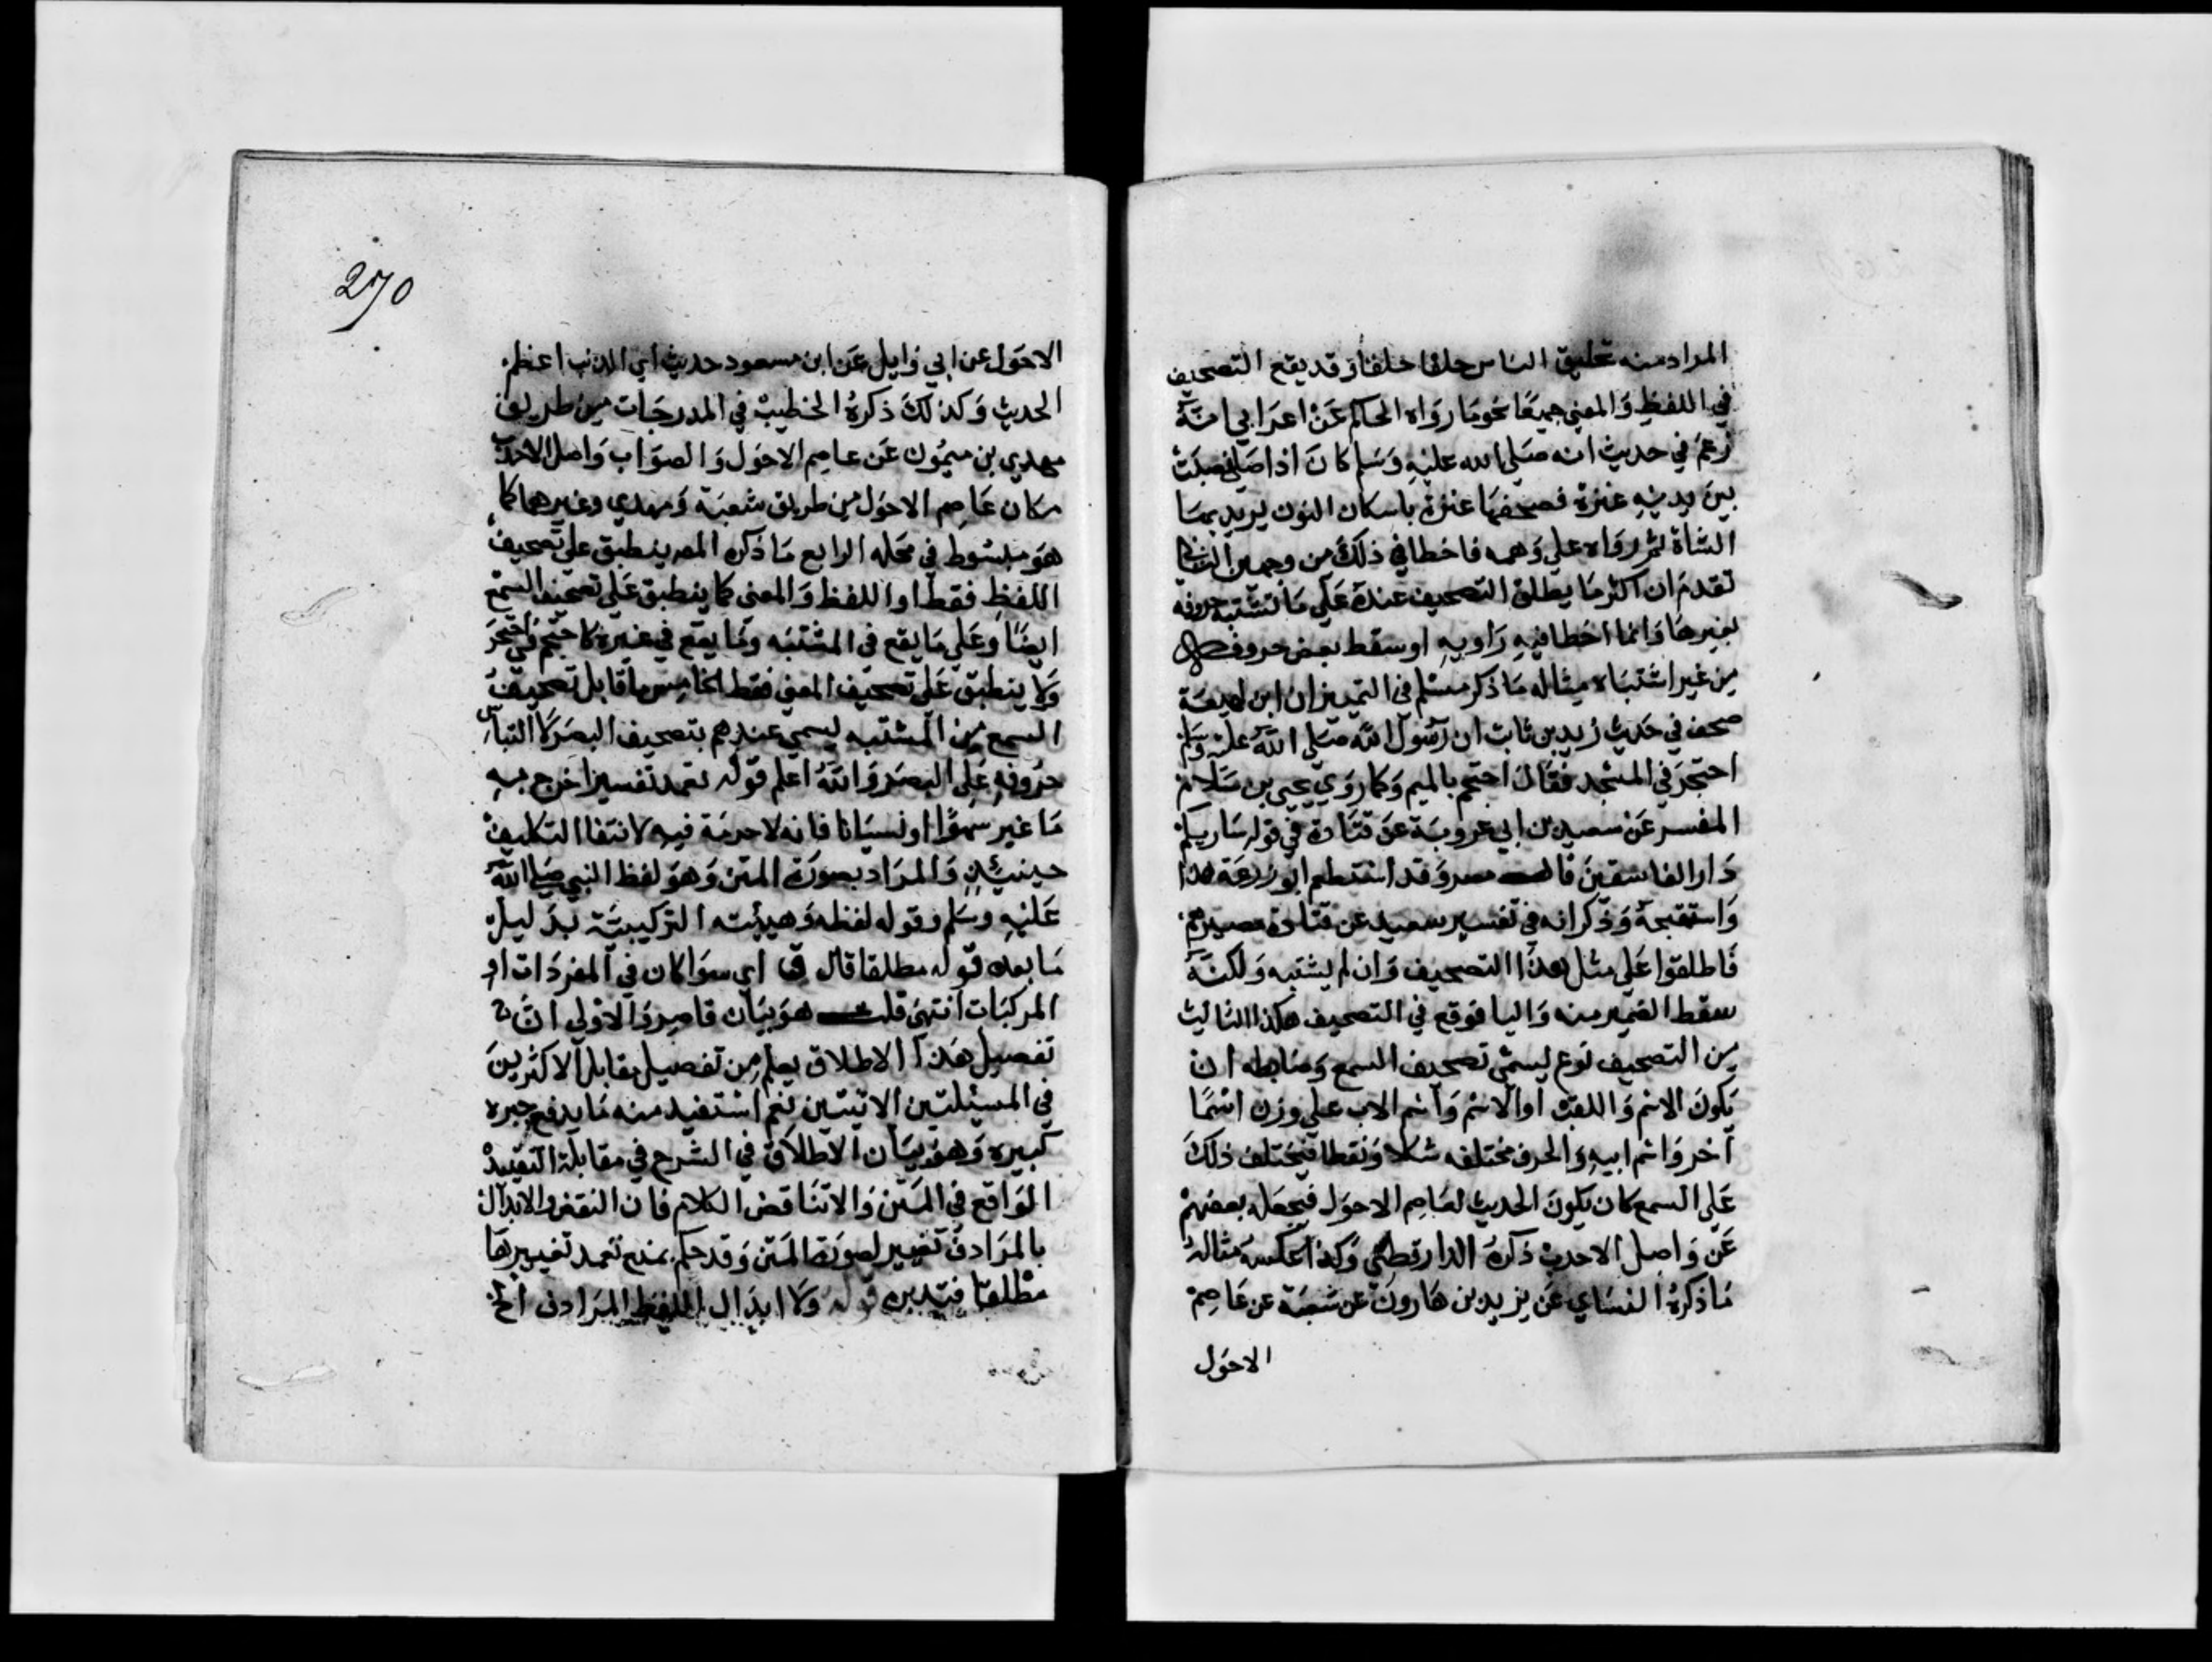 المراد منه تحليق الناس حلقا حلقا وقد يقع التصحيف
في اللفظ والمعني جميعا نحو ما رواه الحاكم عن اعرابي انه
زعم في حديث انه صلي الله عليه وسلم كان اذا صلي نصبت
بين يديه عنزة فصحفها عنزة باسكان النون يريد بها
الشاة ثم رواه علي وهمه فاخطا في ذلك من وجهين الثاني
تقدم ان اكثر ما يطلق التصحيف عنده علي ما تشتبه حروفه
بغيرها وانما اخطا فيه راويه او سقط بعض حروفه
من غير اشتباه مثاله ما ذكر مسلم في التمييز ان ابن لهيعة
صحف في حديث زيد بن ثابت ان رسول الله صلي الله عليه وسلم
احتجر في المسجد فقال احتجم بالميم وكما روي يحيى بن سلام
المفسر عن سعيد بن ابي عروبة عن قتادة في قوله ساريكم
دار الفاسقين قال مصر وقد استعظم ابو زرعة هذا
واستقبحه وذكر انه في تفسير سعيد عن قتادة مصيرهم
فاطلقوا علي مثل هذا التصحيف وان لم يشتبه ولكنه
سقط الضمير منه واليا فوقع في التصحيف هكذا الثالث
من التصحيف نوع يسمي تصحيف السمع وضابطه ان
يكون الاسم واللقب او الاسم واسم الاب علي وزن اسم
اخر واسم ابيه والحرف مختلفه شكلا ونقطا فيختلف ذلك
علي السمع كان يكون الحديث لعاصم الاحول فيجعله بعضهم
عن واصل الاحدب ذكره الدارقطني وكذا عكسه مثاله
ما ذكره النساي عن يزيد بن هارون عن شعبة عن عاصم
الاحول
270
الاحول عن ابي وايل عن ابن مسعود حديث اي الذنب اعظم
الحديث وكذلك ذكره الخطيب في المدرجات من طريق
مهدي بن ميمون عن عاصم الاحول والصواب واصل الاحدب
مكان عاصم الاحول من طريق شعبة ومهدي وغيرهما كما
هو مبسوط في محله الرابع ما ذكره المص ينطبق علي تصحيف
اللفظ فقط او اللفظ والمعنى كما ينطبق علي تصحيف السمع
ايضا وعلي ما يقع في المشتبه وما يقع في غيره كاحتجم في احتجر
ولا ينطبق علي تصحيف المعني فقط الخامس ما قابل تصحيف
السمع من المشتبه يسمي عندهم بتصحيف البصر لالتباس
حروفه علي البصر والله اعلم قوله تعمد تغيير اخرج به
ما غير سهوا او نسيانا فانه لا حرمة فيه لانتفا التكليف
حينيذ والمراد بصورة المتن وهو لفظ النبي صلي الله
عليه وسلم وقوله لفظه وهيئته التركيبية بدليل
ما بعده قوله مطلقا قال ق اي سوا كان في المفردات او
المركبات انتهى قلت هو بيان قاصر والاولي ان
تفصيل هذا الاطلاق يعلم من تفصيل مقابل الاكثرين
في المسئلتين الاتيتين نعم استفيد منه ما يدفع حيرة
كبيرة وهو بيان الاطلاق في الشرح في مقابلة التقييد
الواقع في المتن والا تناقض الكلام فان النقص والابدال
بالمرادف تغيير لصورة المتن وقد حكم بمنع تعمد تغييرها
مطلقا فتدبره قوله ولا ابدال اللفظ المرادف الخ